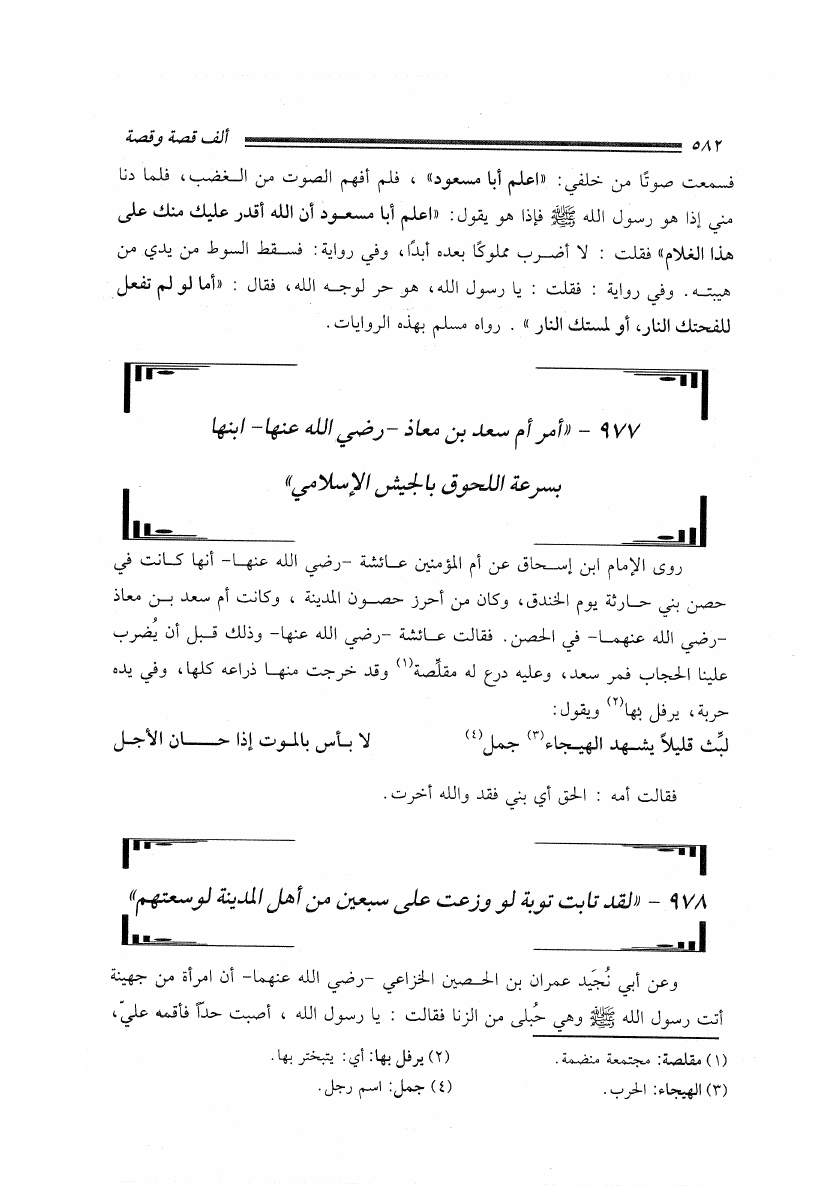 ٥٨٢ ألف قصة وقصة
فسمعت صوتًا من خلفي: «اعلم أبا مسعود» ، فلم أفهم الصوت من الغضب، فلما دنا
مني إذا هو رسول الله ﷺ فإذا هو يقول: «اعلم أبا مسعود أن الله أقدر عليك منك على
هذا الغلام» فقلت : لا أضرب مملوكًا بعده أبدًا، وفي رواية: فسقط السوط من يدي من
هيبته. وفي رواية : فقلت : يا رسول الله، هو حر لوجه الله، فقال : «أما لو لم تفعل
للفحتك النار، أو لمستك النار » . رواه مسلم بهذه الروايات.
٩٧٧ – «أمر أم سعد بن معاذ –رضي الله عنها– ابنها
بسرعة اللحوق بالجيش الإسلامي»
روى الإمام ابن إسحاق عن أم المؤمنين عائشة –رضي الله عنها– أنها كانت في
حصن بني حارثة يوم الخندق، وكان من أحرز حصون المدينة ، وكانت أم سعد بن معاذ
–رضي الله عنهما– في الحصن. فقالت عائشة –رضي الله عنها– وذلك قبل أن يُضرب
علينا الحجاب فمر سعد، وعليه درع له مقلِّصة(١) وقد خرجت منها ذراعه كلها، وفي يده
حربة، يرفل بها(٢) ويقول:
لبِّث قليلاً يشهد الهيجاء(٣) جمل(٤) لا بأس بالموت إذا حان الأجل
فقالت أمه : الحق أي بني فقد والله أخرت.
٩٧٨ – «لقد تابت توبة لو وزعت على سبعين من أهل المدينة لوسعتهم»
وعن أبي نُجَيد عمران بن الحصين الخزاعي –رضي الله عنهما– أن امرأة من جهينة
أتت رسول الله ﷺ وهي حُبلى من الزنا فقالت : يا رسول الله ، أصبت حدّاً فأقمه عليّ،
(١) مقلصة: مجتمعة منضمة. (٢) يرفل بها: أي: يتبختر بها.
(٣) الهيجاء: الحرب. (٤) جمل: اسم رجل.